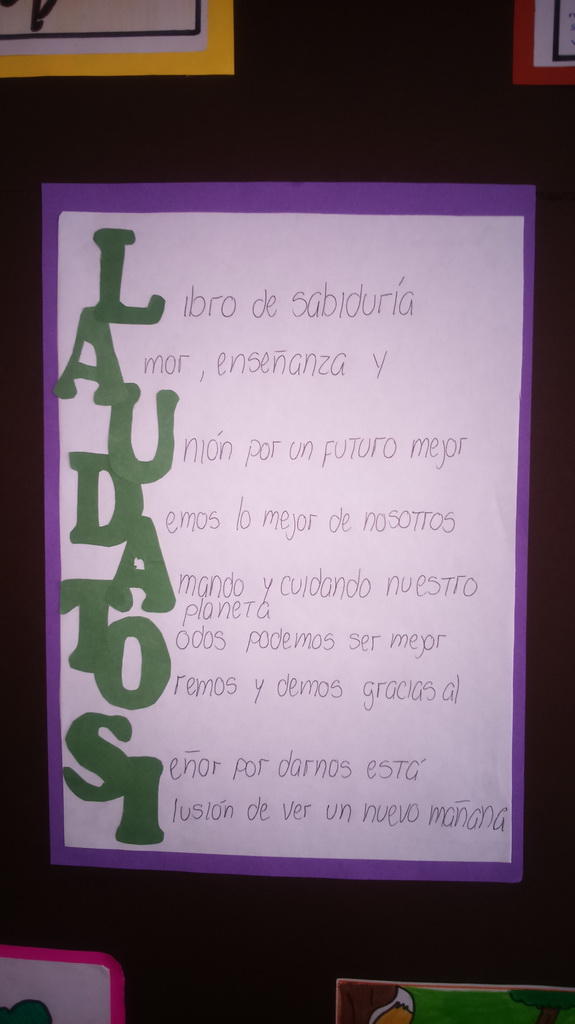 Libro de sabiduría
Amor, enseñanza y
Unión por un futuro mejor
Demos lo mejor de nosotros
Amando y cuidando nuestro
planeta
Todos podemos ser mejor
Oremos y demos gracias al
Señor por darnos está
Ilusión de ver un nuevo mañana